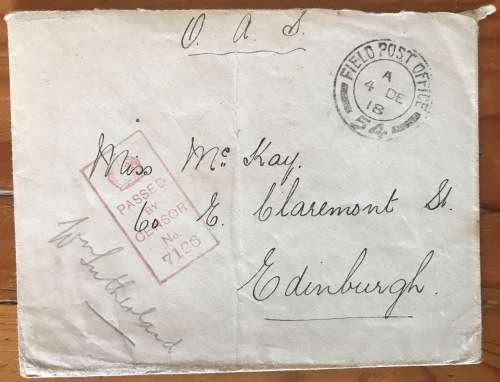 O. A. S.
FIELD POST OFFICE
A
4 DE
18
54
Miss McKay.
60 E. Claremont St.
Edinburgh.
PASSED
BY
CENSOR
No.
Wm Sutherland